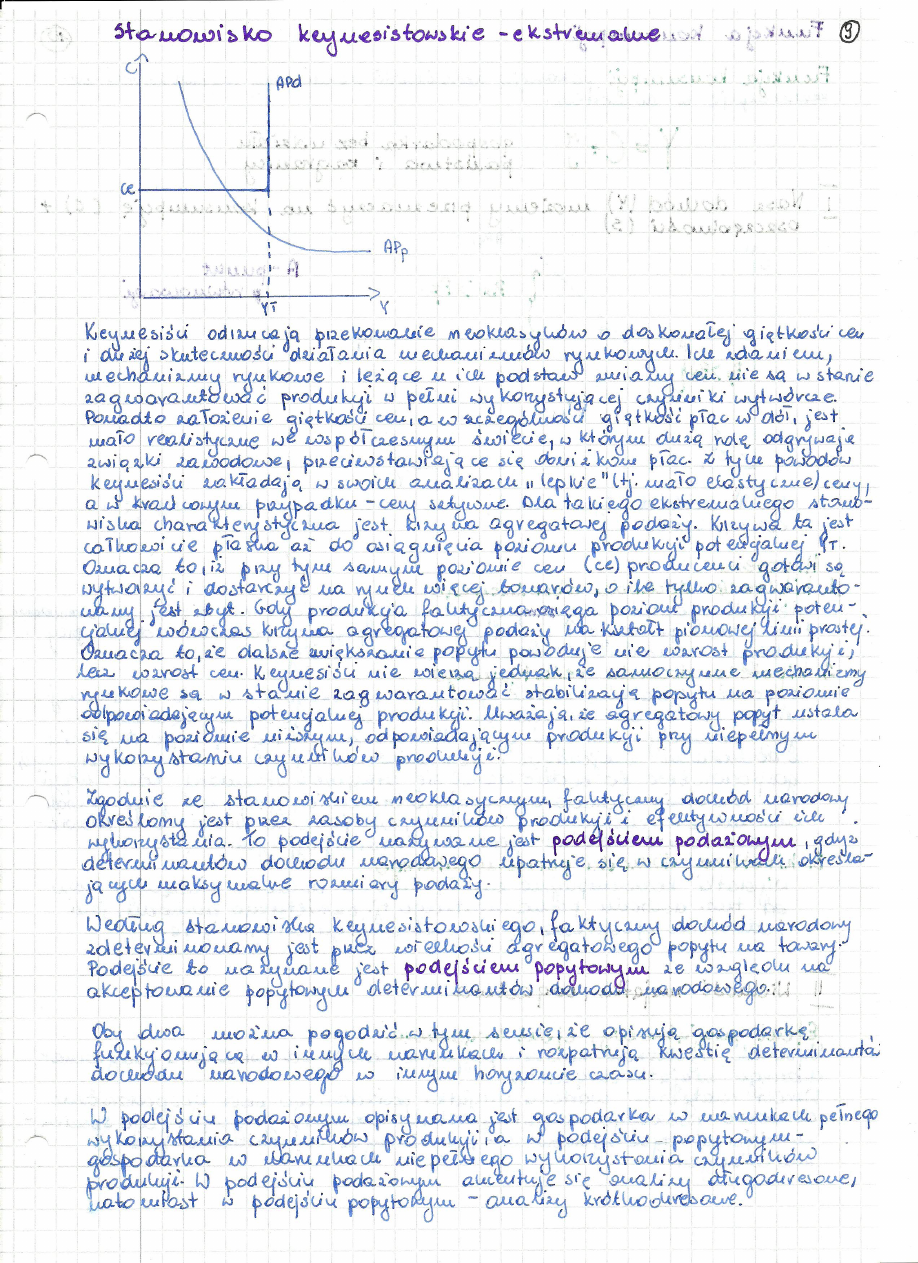 Stanowisko keynesistowskie - ekstremalne
9
C
APd
Ce
APp
YT
Y
Keynesiści odrzucają przekonanie neoklasyków o doskonałej giętkości cen
i dużej skuteczności działania mechanizmów rynkowych. Ich zdaniem,
mechanizmy rynkowe i leżące u ich podstaw zmiany cen nie są w stanie
zagwarantować produkcji w pełni wykorzystującej czynniki wytwórcze.
Ponadto założenie giętkości cen, a w szczególności giętkość płac w dół, jest
mało realistyczne we współczesnym świecie, w którym dużą rolę odgrywają
związki zawodowe, przeciwstawiające się obniżkom płac. Z tych powodów
keynesiści zakładają w swoich analizach "lepkie" (tj. mało elastyczne) ceny,
a w krańcowym przypadku - ceny sztywne. Dla takiego ekstremalnego stano-
wiska charakterystyczna jest krzywa agregatowej podaży. Krzywa ta jest
całkowicie płaska aż do osiągnięcia poziomu produkcji potencjalnej YT.
Oznacza to, iż przy tym samym poziomie cen (ce) producenci gotowi są
wytworzyć i dostarczyć na rynek więcej towarów, o ile tylko zagwaranto-
wany jest zbyt. Gdy produkcja faktyczna osiąga poziom produkcji poten-
cjalnej wówczas krzywa agregatowej podaży ma kształt pionowej linii prostej.
Oznacza to, że dalsze zwiększanie popytu powoduje nie wzrost produkcji,
lecz wzrost cen. Keynesiści nie wierzą jednak, że samoczynne mechanizmy
rynkowe są w stanie zagwarantować stabilizację popytu na poziomie
odpowiadającym potencjalnej produkcji. Uważają, że agregatowy popyt ustala
się na poziomie niższym, odpowiadającym produkcji przy niepełnym
wykorzystaniu czynników produkcji.
Zgodnie ze stanowiskiem neoklasycznym, faktyczny dochód narodowy
określony jest przez zasoby czynników produkcji i efektywności ich
wykorzystania. To podejście nazywane jest podejściem podażowym, gdyż
determinantów dochodu narodowego upatruje się w czynnikach określa-
jących maksymalne rozmiary podaży.
Według stanowiska keynesistowskiego, faktyczny dochód narodowy
zdeterminowany jest przez wielkości agregatowego popytu na towary.
Podejście to nazywane jest podejściem popytowym ze względu na
akceptowanie popytowym determinantów dochodu narodowego.
Oby dwa można pogodzić w tym sensie, że opisują gospodarkę
funkcjonującą w innych warunkach i rozpatrują kwestię determinantów
dochodu narodowego w innym horyzoncie czasu.
W podejściu podażowym opisywana jest gospodarka w warunkach pełnego
wykorzystania czynników produkcji, a w podejściu popytowym -
gospodarka w warunkach niepełnego wykorzystania czynników
produkcji. W podejściu podażowym akcentuje się analizy długookresowe,
natomiast w podejściu popytowym - analizy krótkookresowe.